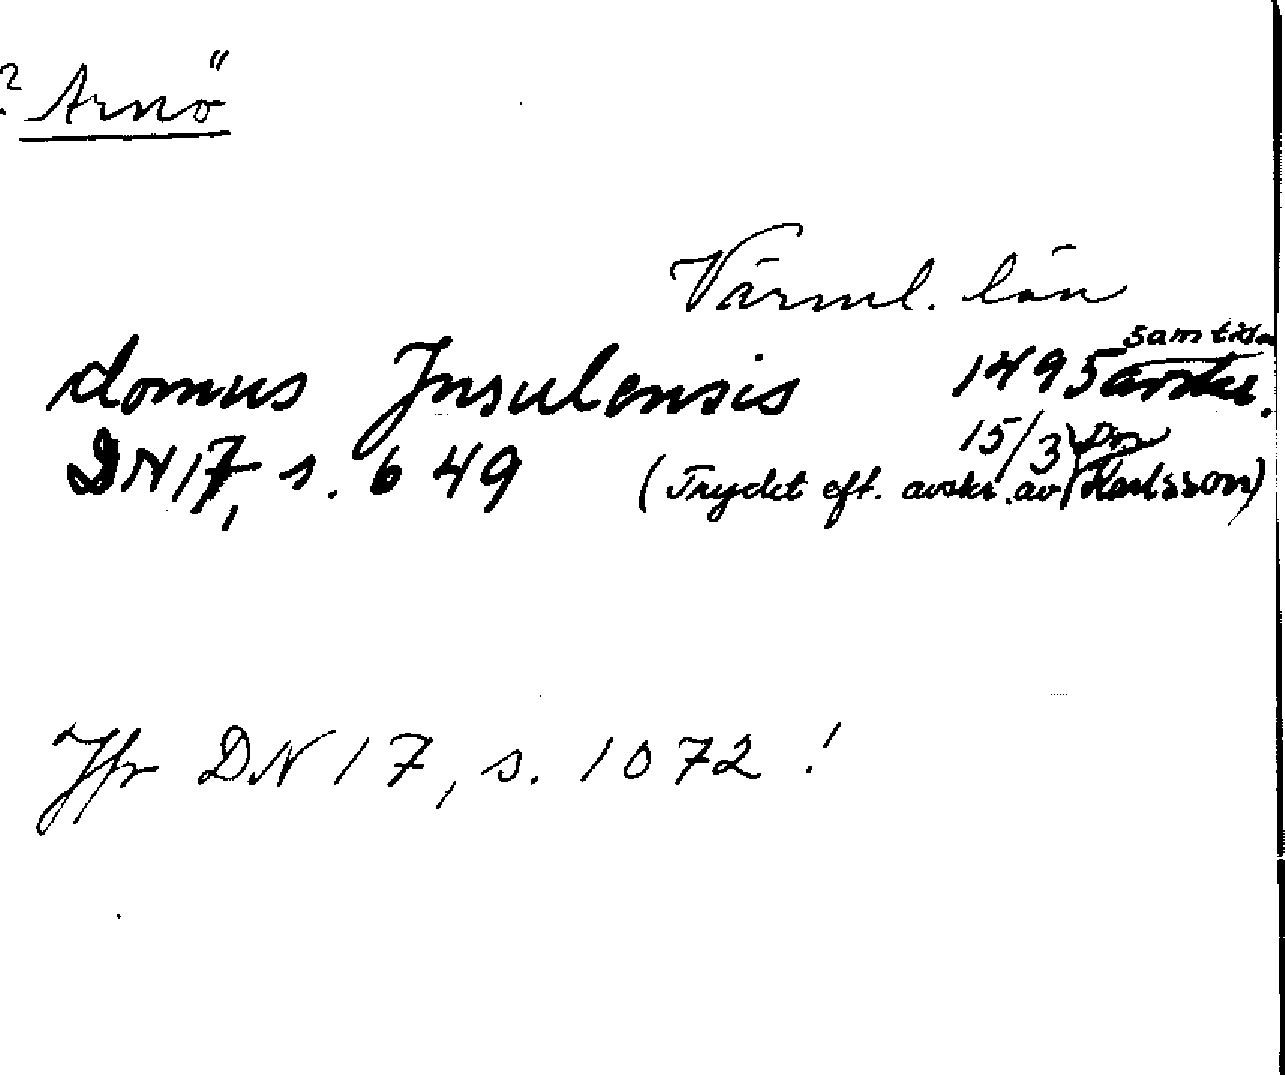 ? Arnö
Värml. län
domus Insulensis 1495 samtida avskr.
DN 17, s. 649 15/3 or
(Tryckt eft. avskr. av Karlsson)
Jfr DN 17, s. 1072!